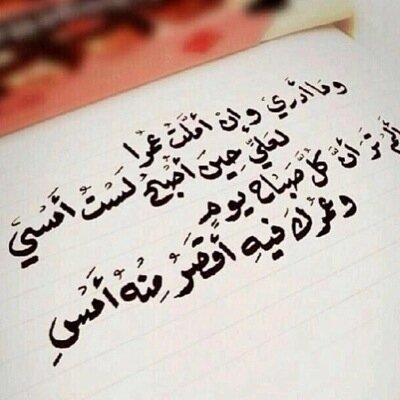 وما أدري وإن أمَّلْتُ عمرا
لعلِّي حِينَ أُصْبِحُ لَسْتُ أُمْسِي
ألم تَرَ أنَّ كُلَّ صَبَاحِ يومٍ
وعمرُكَ فيهِ أقصَرُ مِنْهُ أَمْسِ